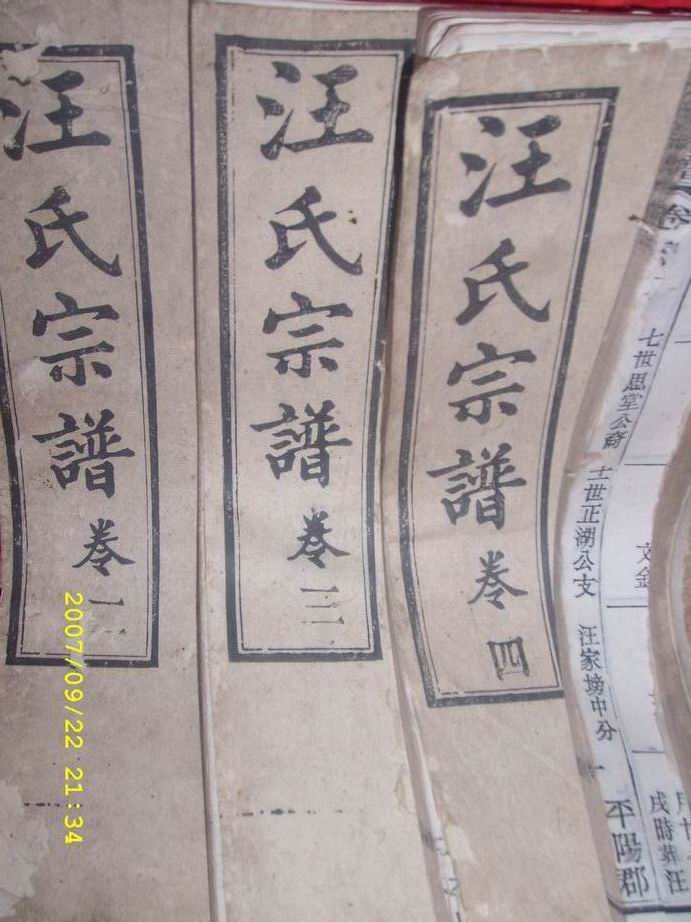 汪氏宗譜 卷二
汪氏宗譜 卷三
汪氏宗譜 卷四
七世思堂公裔 十一世正湖公支 汪家塝中分
平陽郡
戌時葬汪
2007/09/22 21:34